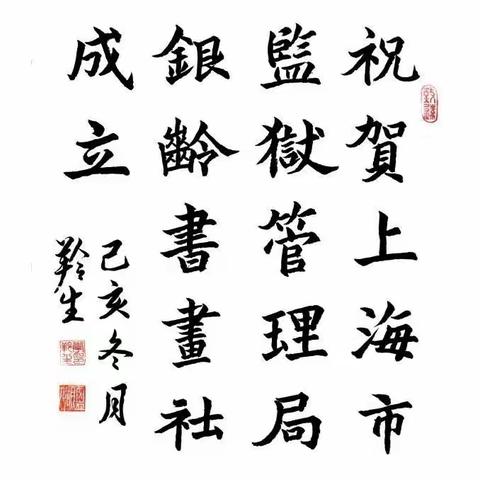 祝賀上海市
監獄管理局
銀齡書畫社
成立
己亥冬月
羚生